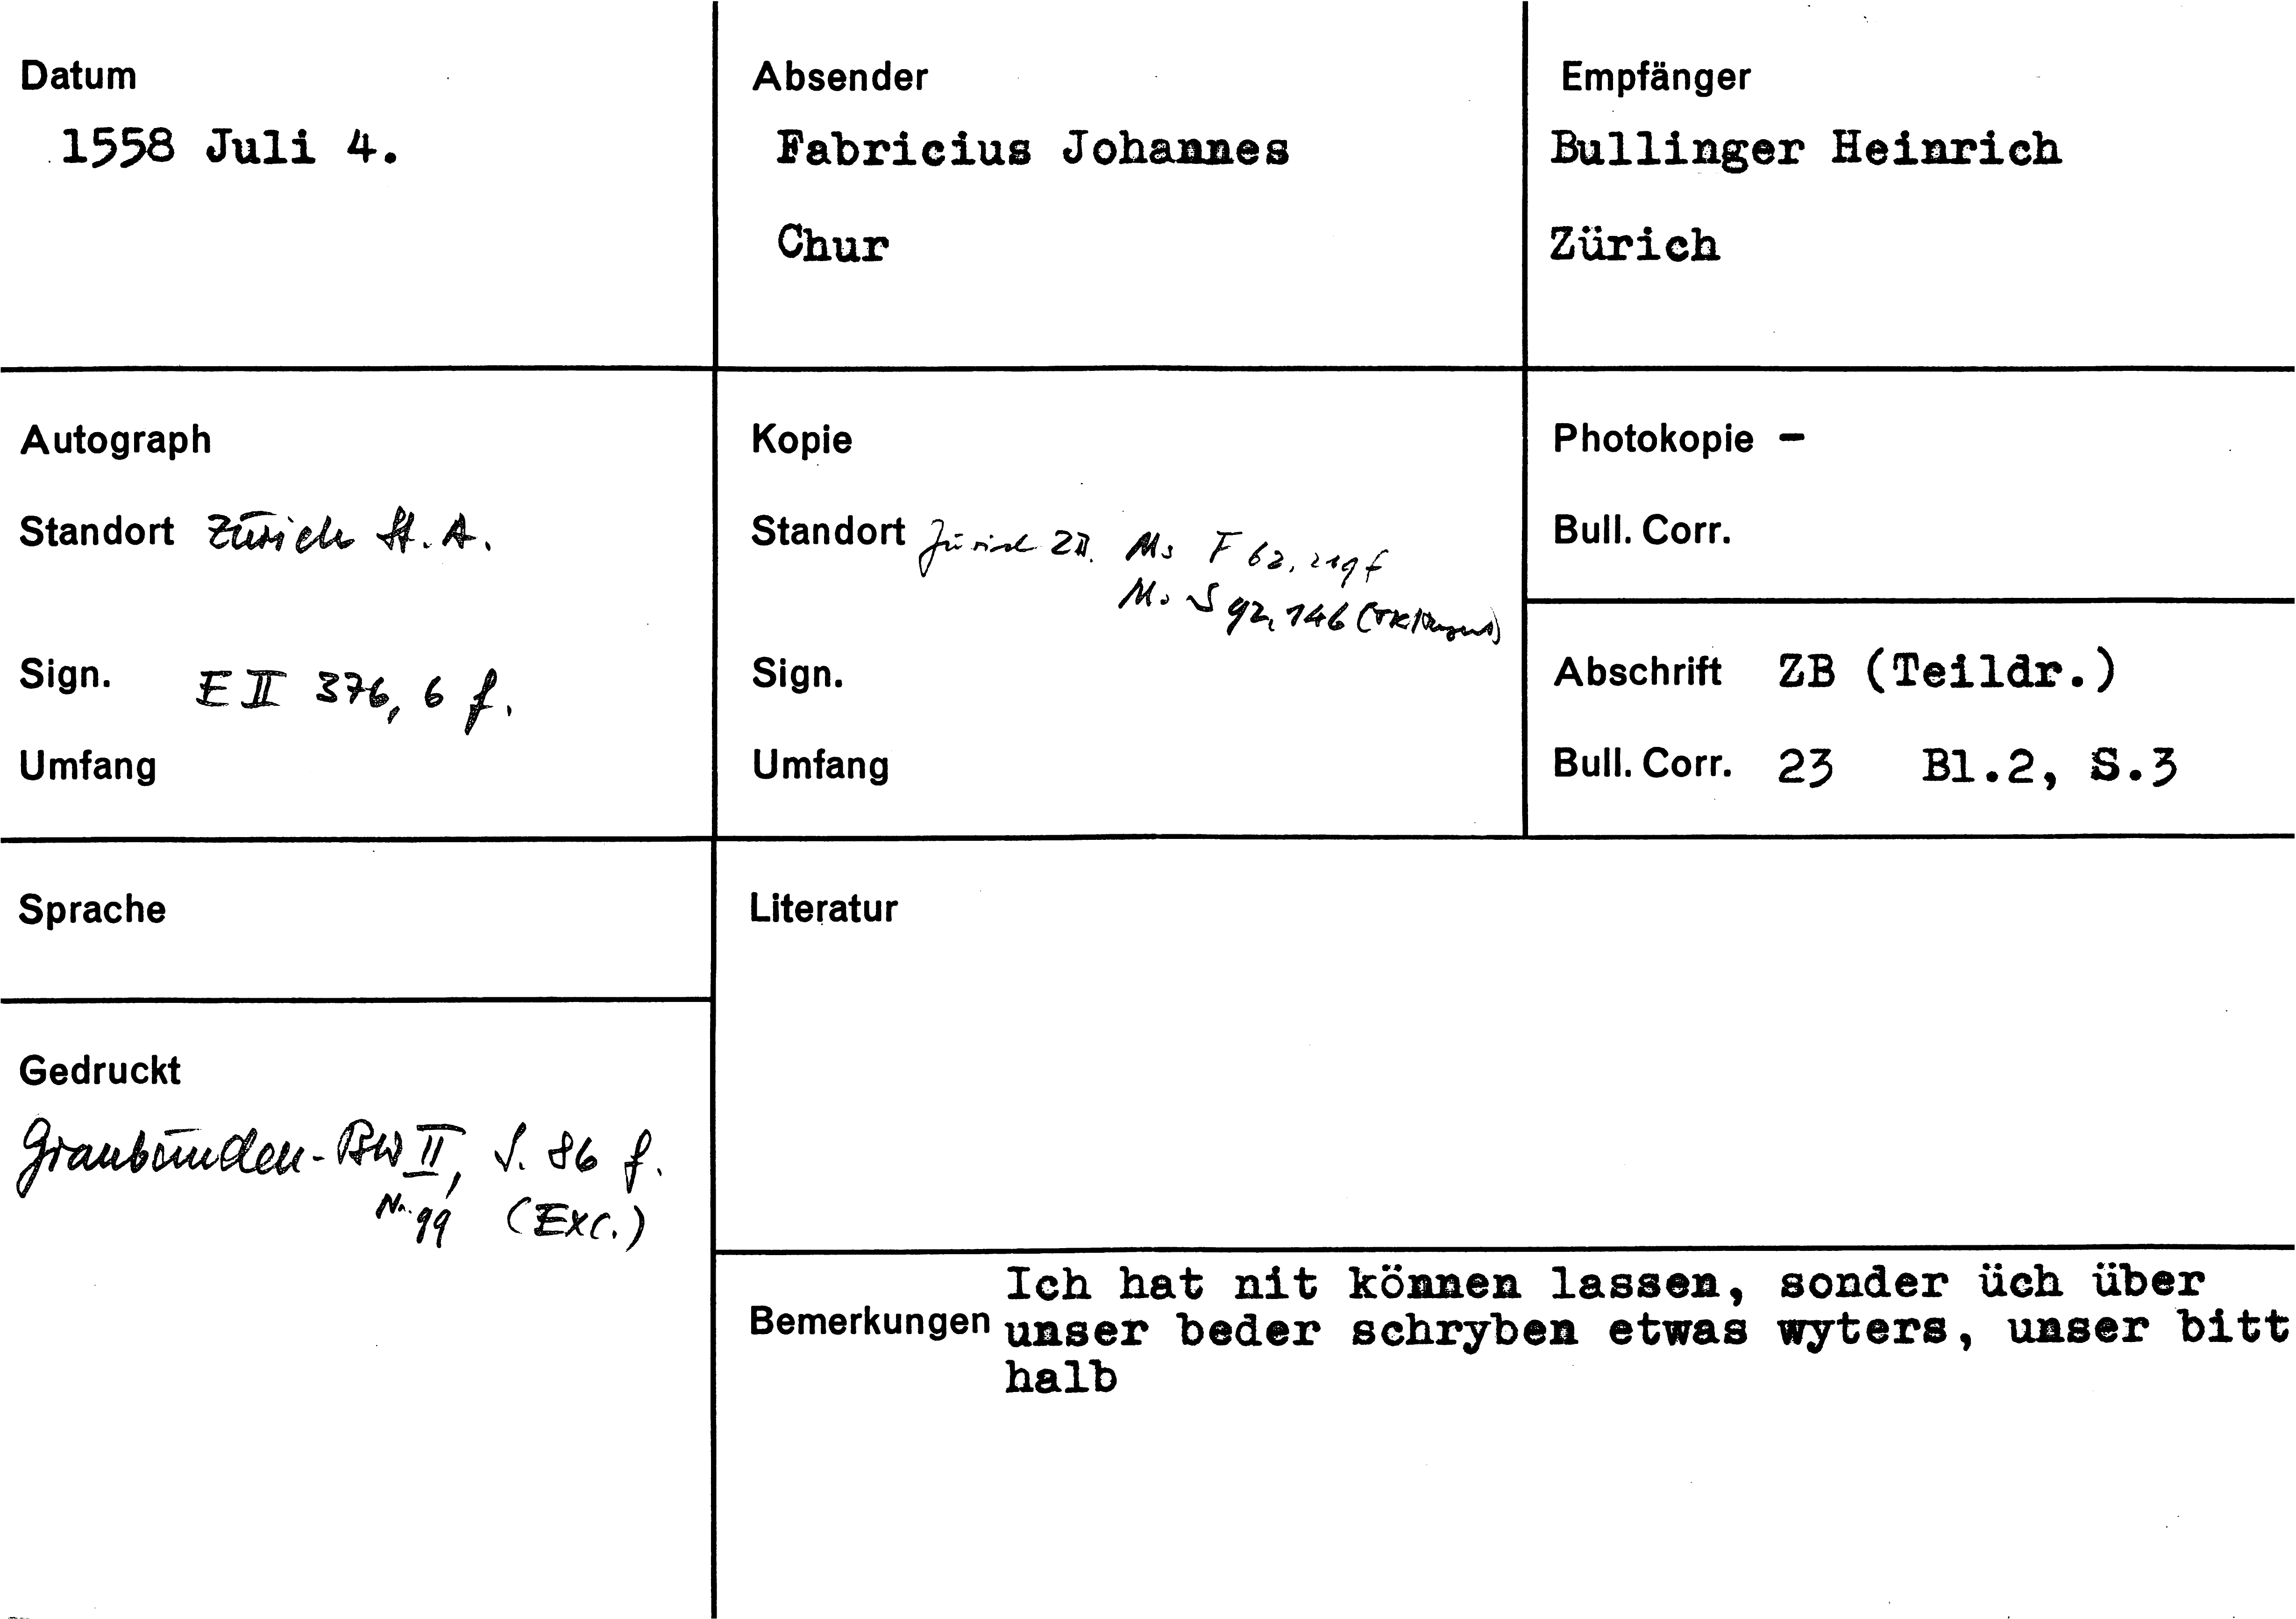 Datum
1558 Juli 4.
Absender
Fabricius Johannes
Chur
Empfänger
Bullinger Heinrich
Zürich
Autograph
Standort Zürich St. A.
Sign. E II 376, 6 f.
Umfang
Kopie
Standort Zürich ZB. Ms F 62, 219 f
Ms S 92, 146
Sign.
Umfang
Photokopie -
Bull. Corr.
Abschrift ZB (Teildr.)
Bull. Corr. 23 Bl.2, S.3
Sprache
Gedruckt
Graubünden-BW II, S. 86 f.
Nr. 99 (Exc.)
Literatur
Bemerkungen
Ich hat nit können lassen, sonder üch über
unser beder schryben etwas wyters, unser bitt
halb